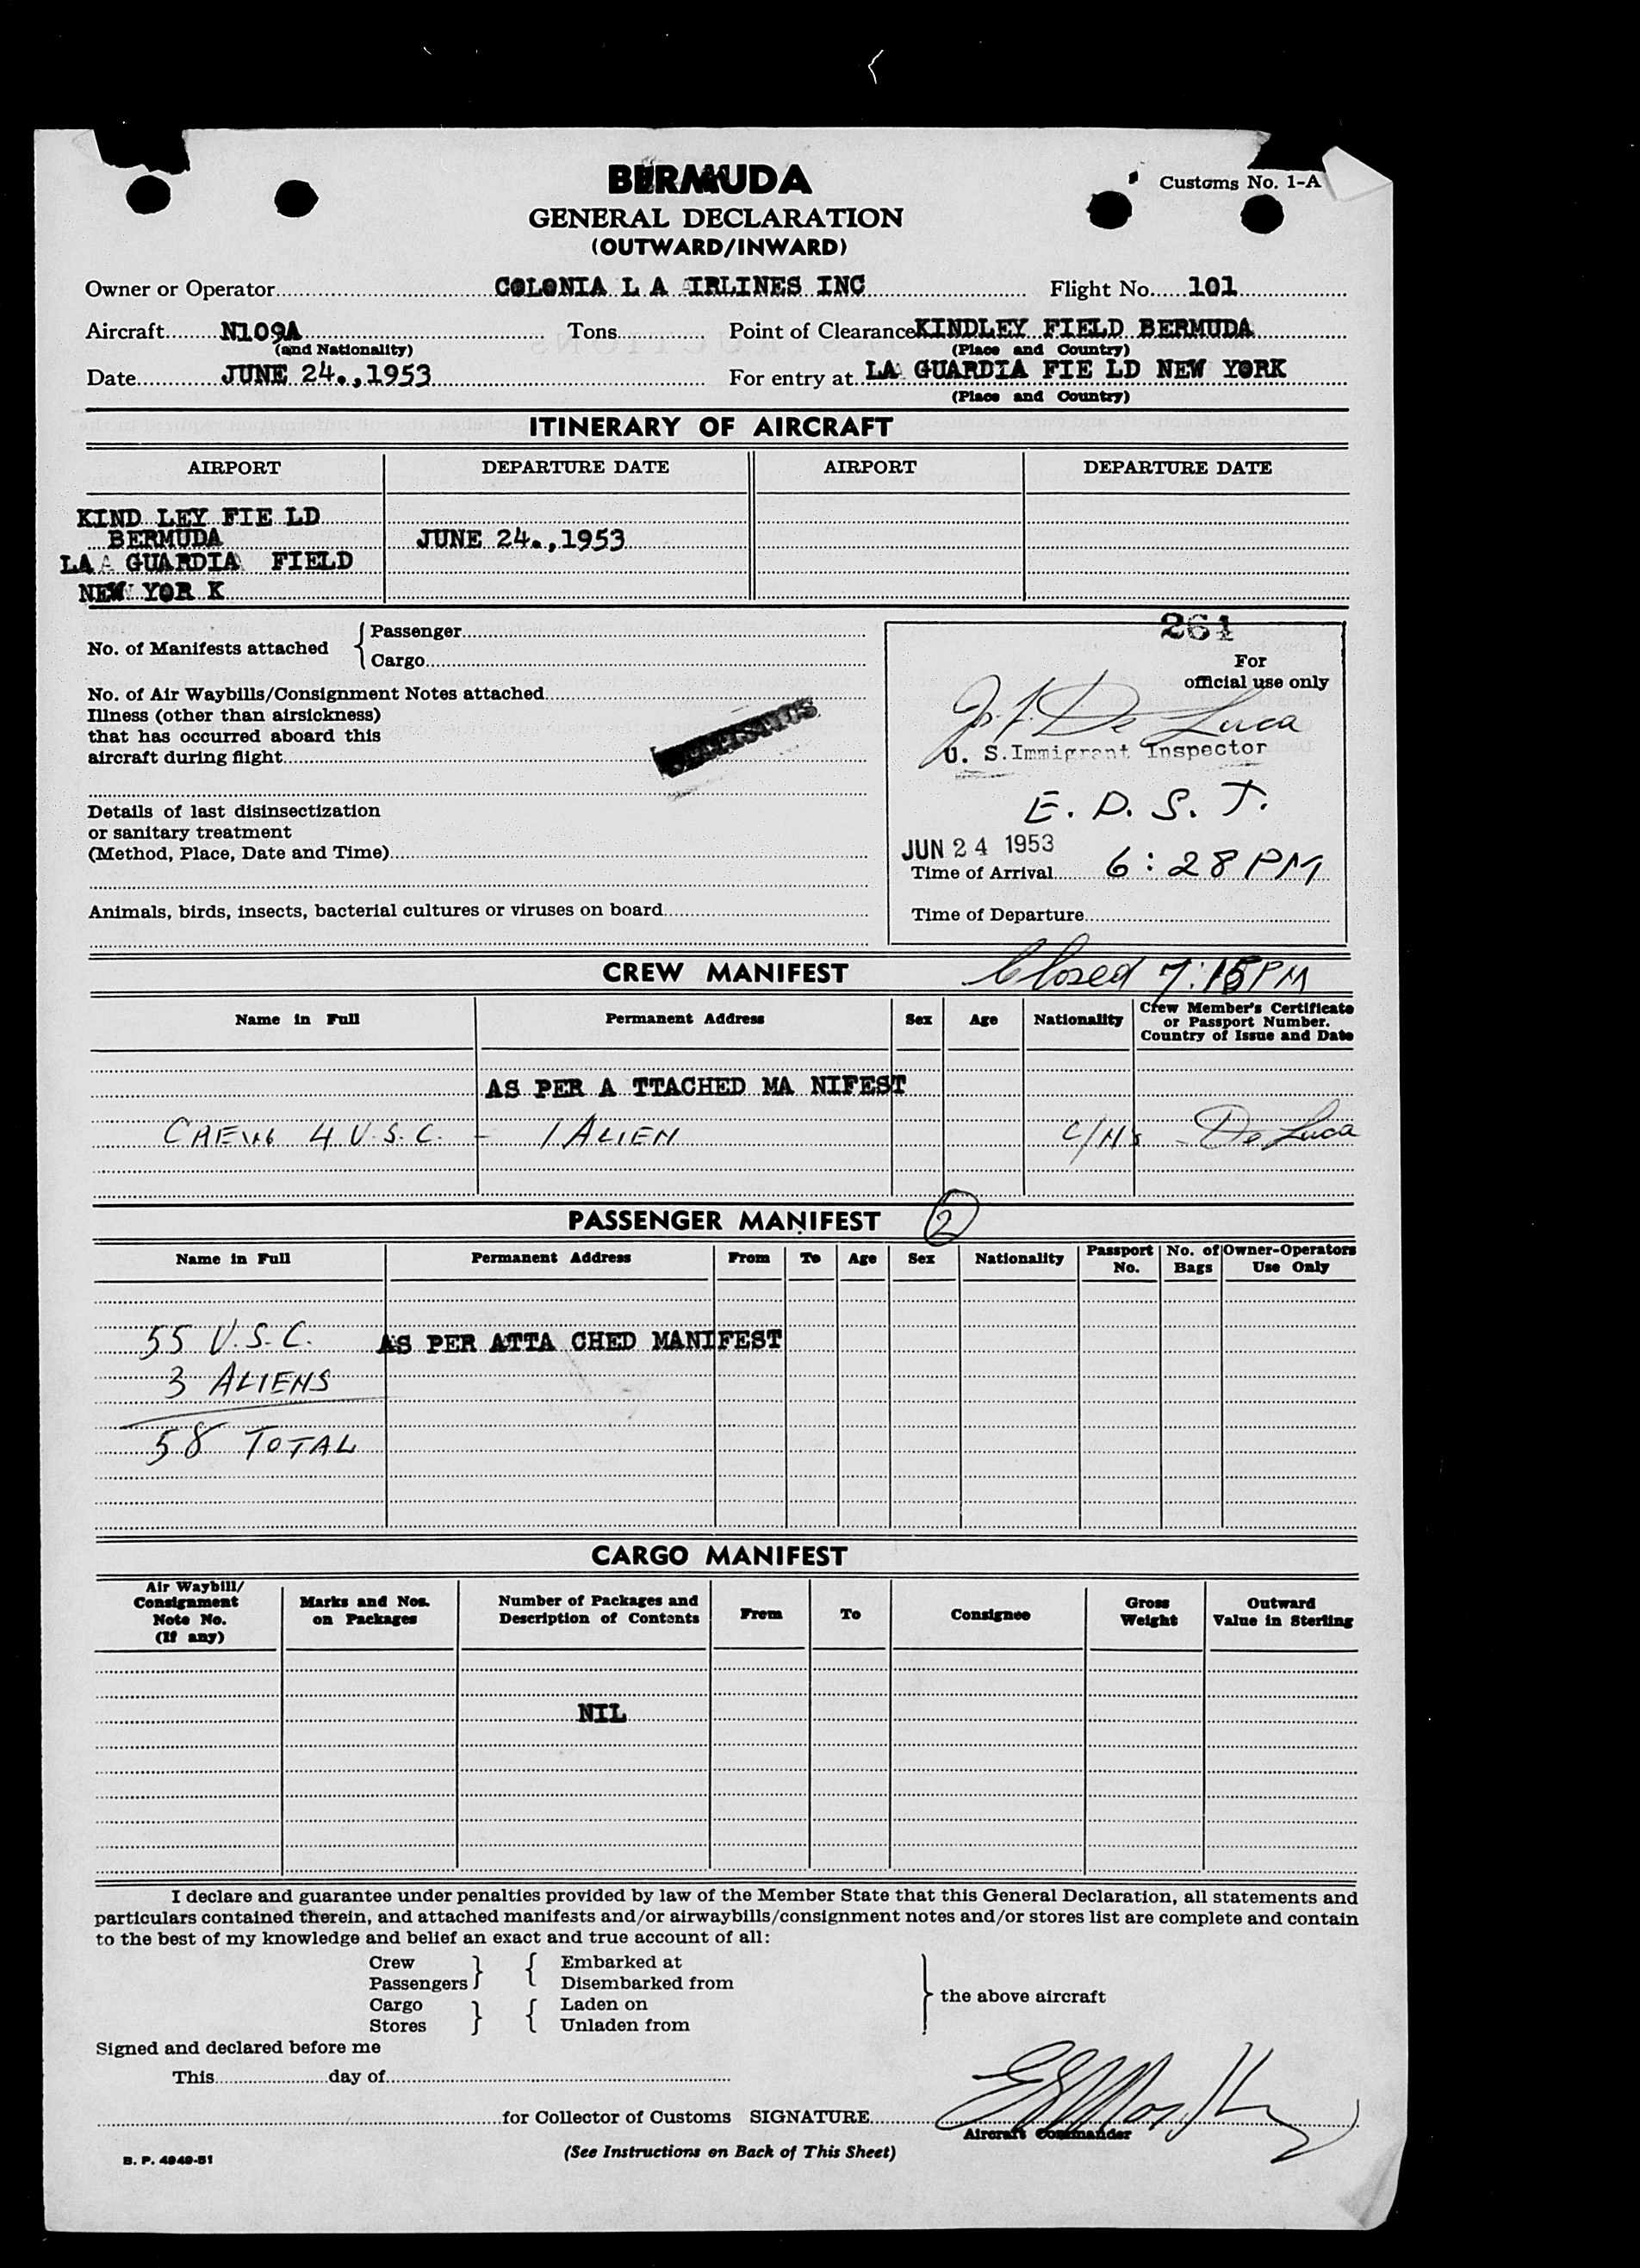 BERMUDA
Customs No. 1-A
GENERAL DECLARATION
(OUTWARD/INWARD)
Owner or Operator COLONIA L A IRLINES INC Flight No. 101
Aircraft N109A Tons Point of Clearance KINDLEY FIELD BERMUDA
(and Nationality) (Place and Country)
Date JUNE 24.,1953 For entry at LA GUARDIA FIE LD NEW YORK
(Place and Country)
ITINERARY OF AIRCRAFT
AIRPORT DEPARTURE DATE AIRPORT DEPARTURE DATE
KIND LEY FIE LD
BERMUDA JUNE 24.,1953
LA GUARDIA FIELD
NEW YOR K
261
No. of Manifests attached { Passenger
Cargo
For
official use only
No. of Air Waybills/Consignment Notes attached
Illness (other than airsickness)
that has occurred aboard this
aircraft during flight
De Luca
U. S. Immigrant Inspector
E. D. S. T.
Details of last disinsectization
or sanitary treatment
(Method, Place, Date and Time)
JUN 24 1953
Time of Arrival 6:28 PM
Animals, birds, insects, bacterial cultures or viruses on board
Time of Departure
CREW MANIFEST Closed 7:15 PM
Name in Full Permanent Address Sex Age Nationality Crew Member's Certificate
or Passport Number.
Country of Issue and Date
AS PER A TTACHED MA NIFEST
4 U.S.C. - 1 ALIEN De Luca
PASSENGER MANIFEST 2
Name in Full Permanent Address From To Age Sex Nationality Passport No. No. of Bags Owner-Operators Use Only
55 U.S.C. AS PER ATTA CHED MANIFEST
3 ALIENS
58 TOTAL
CARGO MANIFEST
Air Waybill/
Consignment
Note No.
(If any)
Marks and Nos.
on Packages
Number of Packages and
Description of Contents
From To Consignee
Gross
Weight
Outward
Value in Sterling
NIL
I declare and guarantee under penalties provided by law of the Member State that this General Declaration, all statements and
particulars contained therein, and attached manifests and/or airwaybills/consignment notes and/or stores list are complete and contain
to the best of my knowledge and belief an exact and true account of all:
Crew } { Embarked at
Passengers Disembarked from
Cargo } { Laden on
Stores Unladen from
} the above aircraft
Signed and declared before me
This day of
for Collector of Customs SIGNATURE
Aircraft Commander
(See Instructions on Back of This Sheet)
B. P. 4949-51